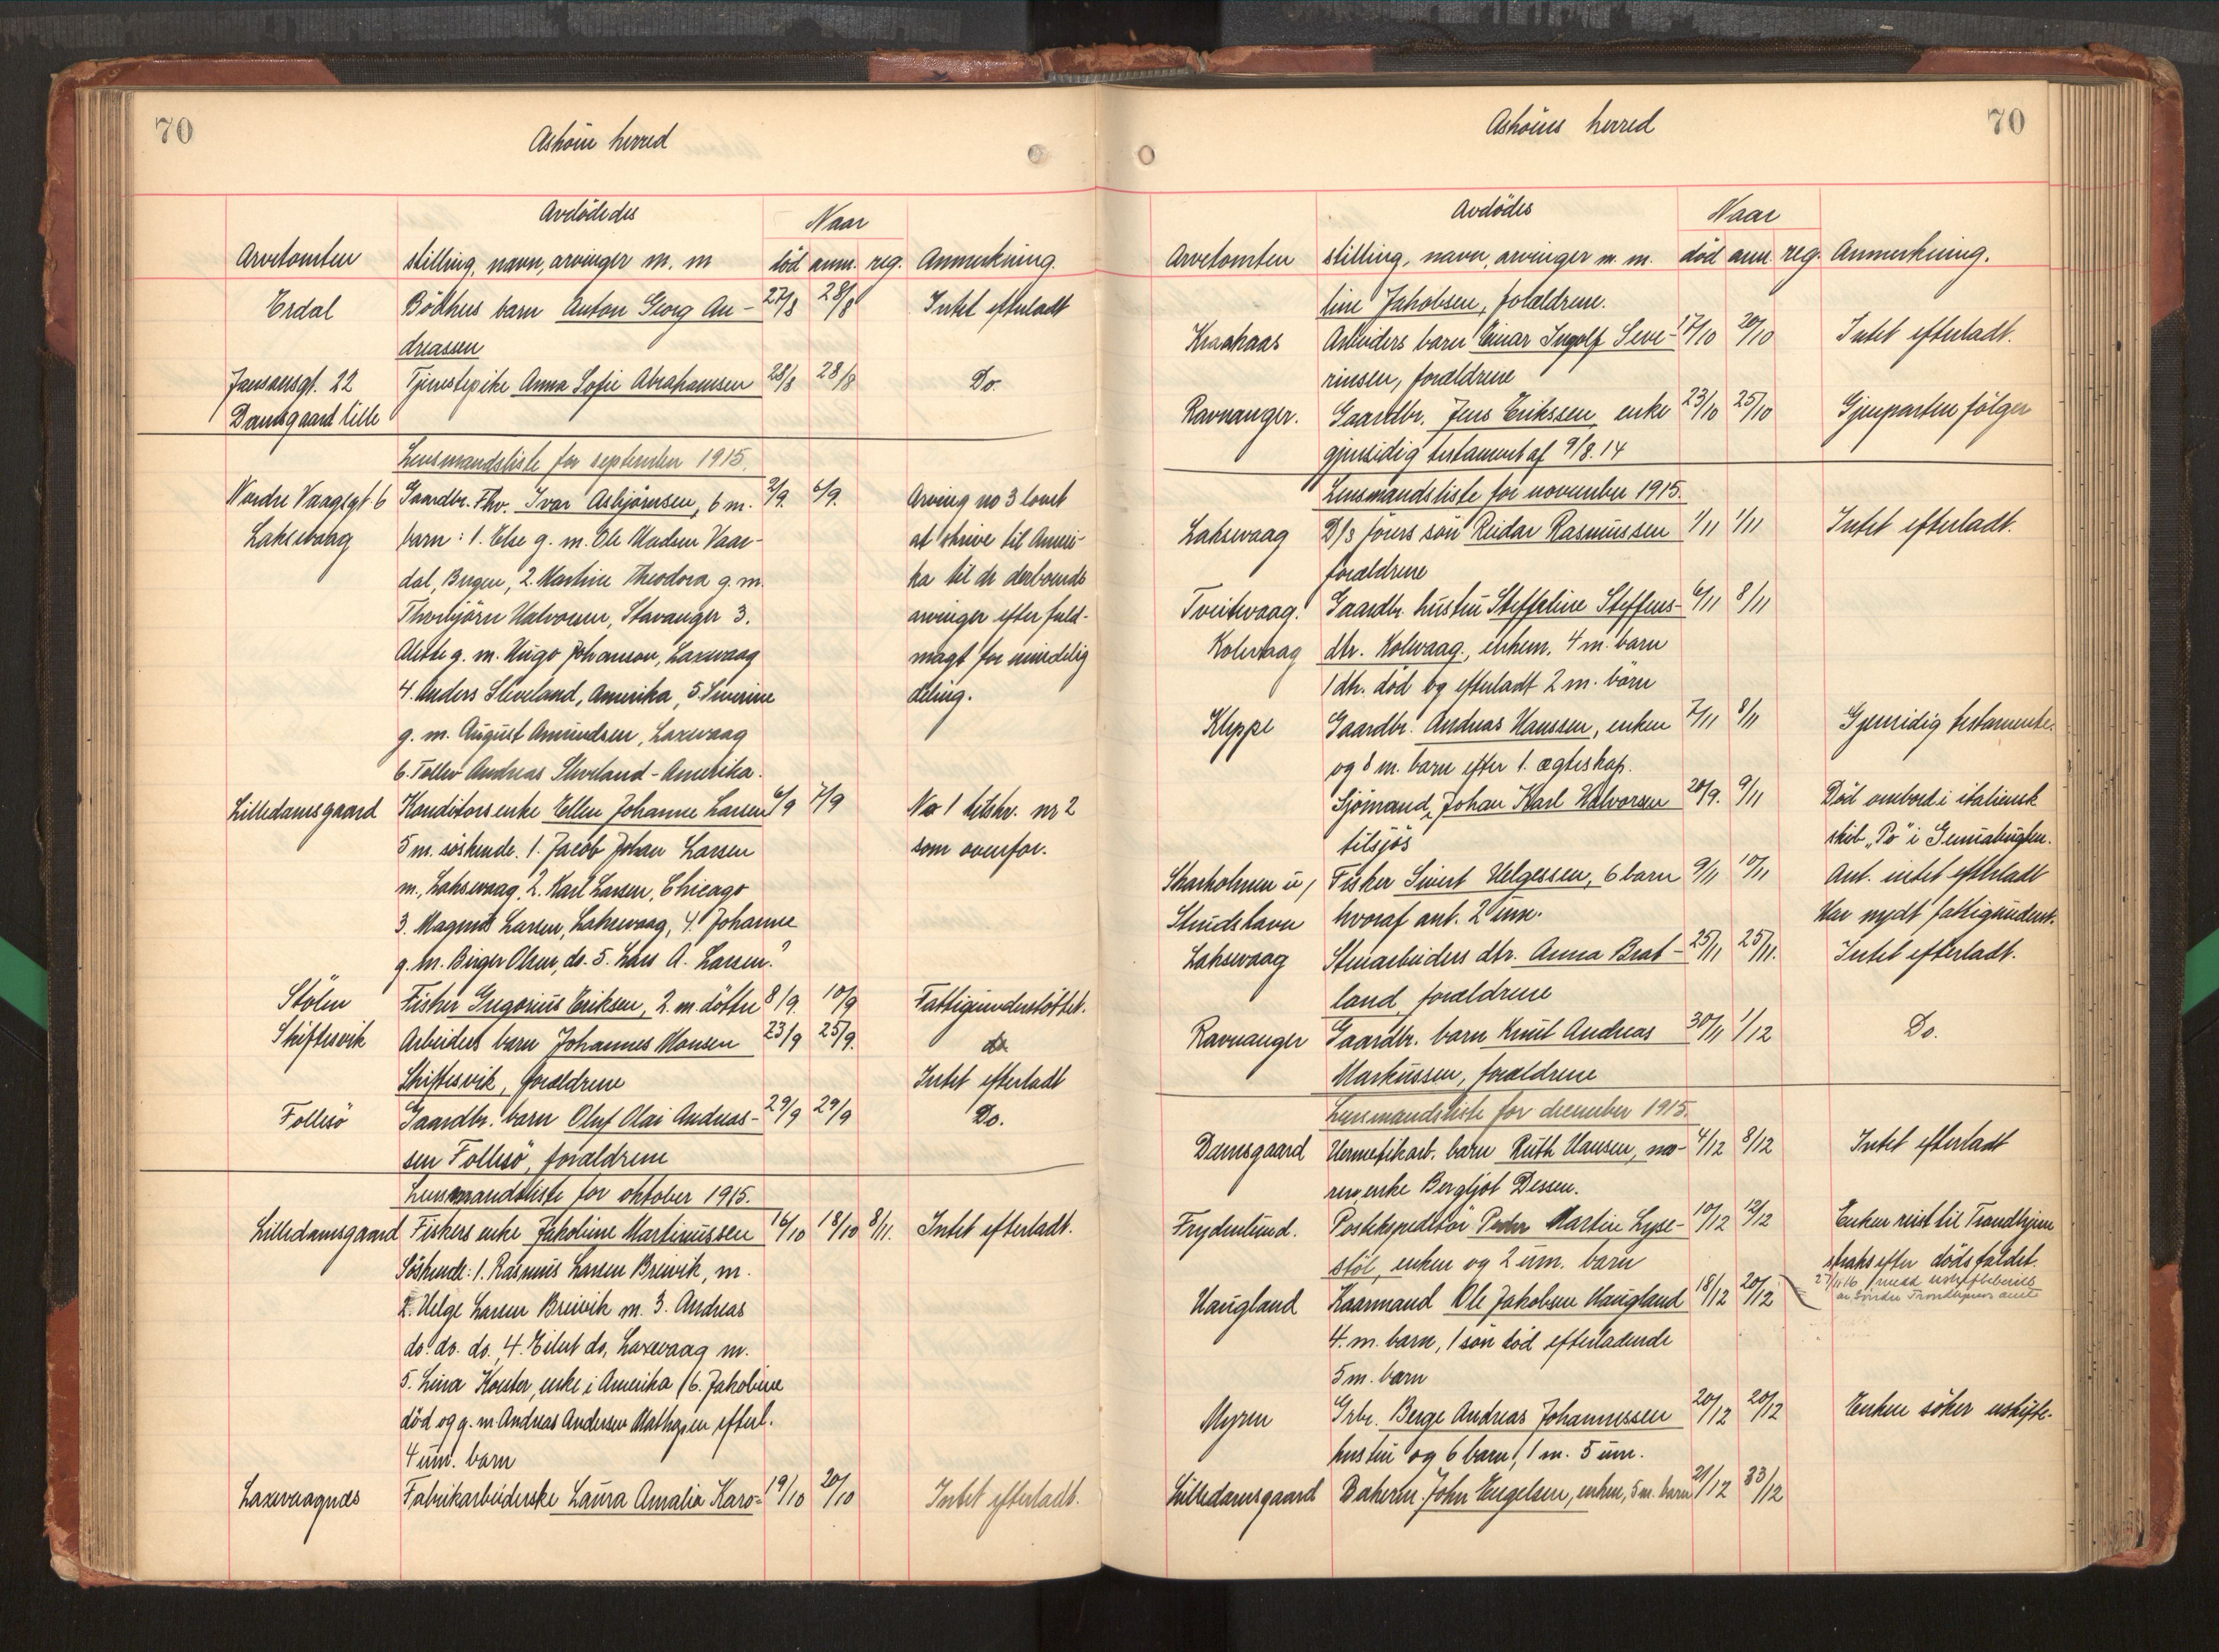 70
Askøin herred
Avdødedes
Naar
Arvetomten stilling, navn, arvinger m. m død anm. reg. Anmerkning.
Erdal Bödkers barn Anton Georg An- 27/8 28/8 Intet efterladt
dreassen
Jansonsgt. 22 Tjenestepike Anna Sofie Abrahamsen 28/8 28/8 Do
Damsgaard lille
Lensmandsliste for september 1915.
Nordre Vaagsgt 6 Gaardbr. Fhv. Ivar Asbjørnsen, 6 m. 2/9. 6/9. Arving no 3 lovet
Laksevaag barn: 1. Else g. m. Ole Madsen Vaar- at skrive til Ameri-
dal, Bergen, 2. Martine Theodora g m. ka til de derboende
Thorbjörn Halvorsen, Stavanger 3. arvinger efter fuld-
Alette g. m. Hugo Johanson, Laxevaag magt for mindelig
4 Anders Sleveland, Amerika, 5. Severine deling.
g. m. August Amundsen, Laxevaag
6. Tollev Andreas Sleveland - Amerika.
Lilledamsgaard Konditors enke Ellen Johanne Larsen 6/9 7/9 No 1 tilskr. nr 2
5 m. söskende. 1. Jacob Johan Larsen som ovenfor.
m., Laksevaag, 2. Karl Larsen, Chicago
3. Magnus Larsen, Laksevaag, 4. Johanne
g. m. Birger Olsen, do. 5. Lars A. Larsen?
Stölen Fisker Gregorius Eriksen, 2. m. döttre 8/9. 10/9 Fattigunderstöttet.
Skiftesvik Arbeiders barn Johannes Monsen 23/9 25/9. do
Skiftesvik, forældrene Intet efterladt
Follesö Gaardbr. barn Oluf Olai Andreas- 29/9 29/9 Do.
sen Follesö, forældrene
Lensmandsliste for oktober 1915.
Lilledamsgaard Fiskers enke Jakobine Martinussen 16/10 18/10 8/11. Intet efterladt.
Söskende: 1. Rasmus Larsen Breivik, m.
2. Helge Larsen Breivik m. 3. Andreas
do. do. do., 4. Eilert do, Laxevaag m.
5. Lina Koester, enke i Amerika, 6. Jakobine
död og g. m. Andreas Andersen Mathopen efterl.
4 um. barn
Laxevaagnæs Fabrikarbeiderske Laura Amalia Karo- 19/10 20/10 Intet efterladt.
70
Askøins herred
Avdödes
Naar
Arvetomten stilling, navn, arvinger m. m. död anm. reg. Anmerkning.
line Jakobsen, forældrene.
Kraakaas Arbeiders barn Einar Ingolf Seve- 17/10 20/10 Intet efterladt.
rinsen, forældrene
Ravnanger. Gaardbr. Jens Erikssen, enke 23/10 25/10 Gjenparten fölger
gjensidig testament af 9/8.14
Lensmandsliste for november 1915.
Laksevaag D/s förers sön Reidar Rasmussen 1/11 1/11 Intet efterladt.
forældrene
Tveitevaag. Gaardbr. hustru Steffeline Steffens- 6/11 8/11
Kolevaag dtr. Kolevaag., enkem. 4 m. barn
1 dtr. död og efterladt 2 m. börn
Kleppe Gaardbr. Andreas Hanssen, enken 7/11 8/11 Gjensidig testamente.
og 8 m. barn efter 1. ægteskap.
Sjömand, Johan Karl Halvorsen 20/9. 9/11 Död ombord i italiensk
tilsjös skib "Po" i Genuabugten.
Skarholmen u/ Fisker Sivert Helgessen, 6 barn 9/11 10/11 Ant. intet efterladt
Strudshavn hvoraf ant. 2 um. Har nydt fattigunderst.
Laksevaag Stenarbeiders dtr. Anna Brat- 25/11 25/11. Intet efterladt.
land, forældrene
Ravnanger Gaardbr. barn Knut Andreas 30/11 1/12 Do.
Markussen, forældrene
Lensmandsliste for december 1915.
Damsgaard Hermetikarb. barn Ruth Hansen, mo- 4/12 8/12 Intet efterladt
ren, enke Bergljot Dessen.
Frydenlund. Postekspeditör Peder Martin Lyse- 10/12 12/12 Enken reist til Trondhjem
stöl, enken og 2 um. barn straks efter dödsfaldet.
27/1 16 med uskiftebevill
av Söndre Trondhjems amt
Haugland Kaarmand Ole Jakobsen Haugland 18/12 20/12
4. m. barn, 1 sön död efterladende
5 m. barn
Myren Grbr. Berge Andreas Johannessen 20/12 20/12 Enken söker uskifte.
hustru og 6 barn, 1 m. 5 um.
Lilledamsgaard Bakerm. John Engelsen, enken, 5 m. barn 21/12 23/12